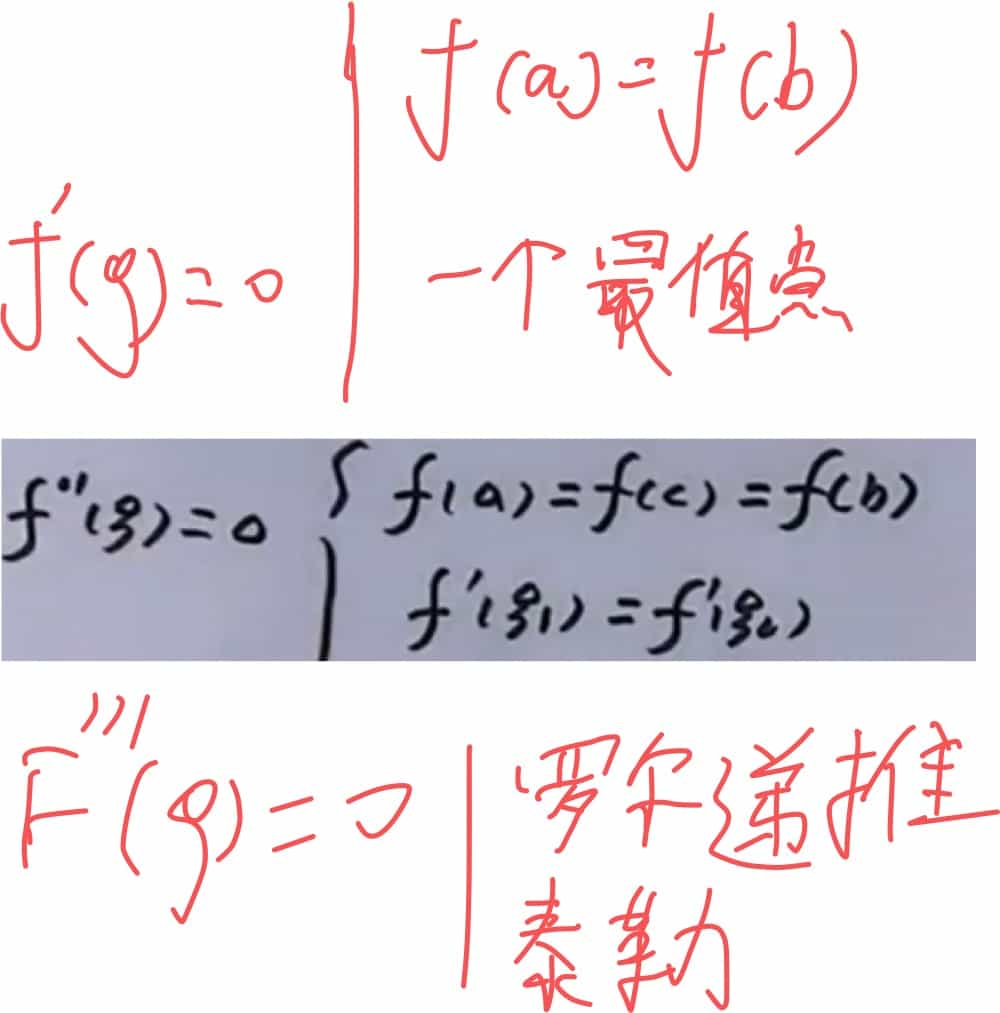 f(a)=f(b)
f'(ξ)=0
一个最值点
f''(ξ)=0 { f(a)=f(c)=f(b)
f'(ξ₁)=f'(ξ₂)
F'''(ξ)=0 | 罗尔递推
泰勒